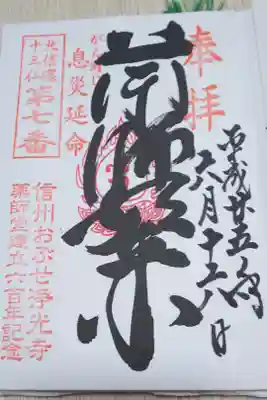 奉拝
平成廿五年
六月十六日
薬師
息災延命
北信濃
十三仏
第七番
信州おぶせ浄光寺
薬師堂建立六百年記念